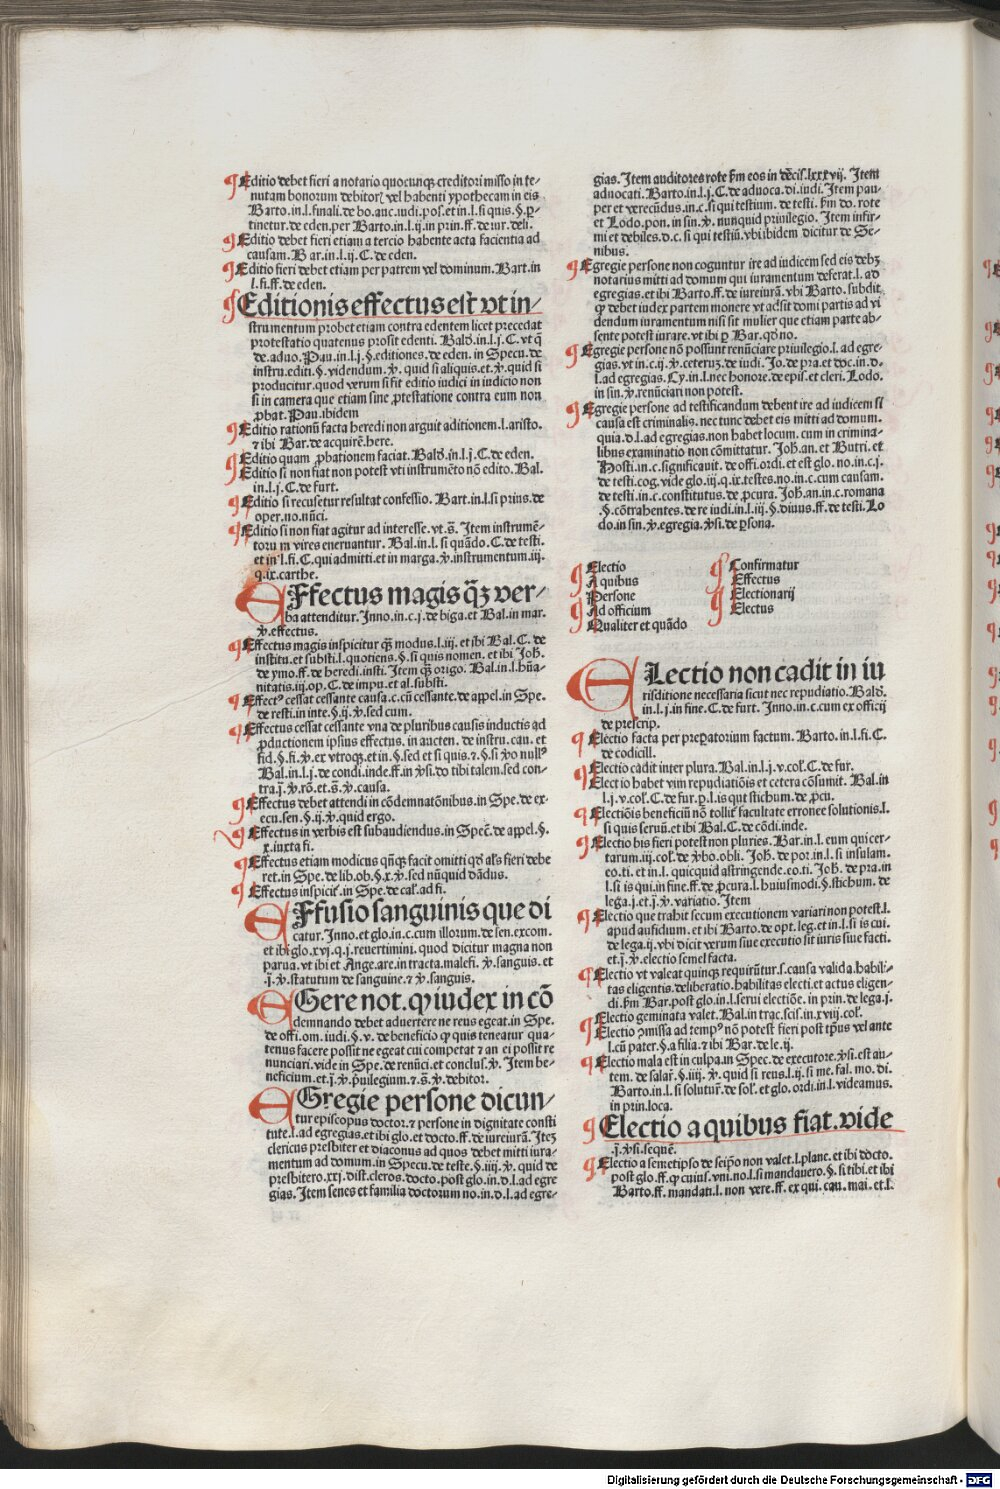 Editio debet fieri a notario quocunqꝫ creditori misso in te-
nutam bonorum debitoris vel habenti ypothecam in eis
Barto.in.l.finali.de bo.auc.iudi.pos.et in.l.si quis.§.ꝑ-
tinetur.de eden.per Barto.in.l.ij.in prin.ff.de iur.deli.
Editio debet fieri etiam a tercio habente acta facientia ad
causam. Bar.in.l.ij.C.de eden.
Editio fieri debet etiam per patrem vel dominum. Bart.in
l.fi.ff.de eden.
Editionis effectus est vt in/
strumentum probet etiam contra edentem licet precedat
protestatio quatenus prosit edenti. Bald.in.l.j.C.vt q̄
de.aduo. Pau.in.l.j.§.editiones.de eden.in Specu.de
instru.editi.§.videndum.ꝟ.quid si aliquis.et.ꝟ.quid si
producitur.quod verum si fit editio iudici in iudicio non
si in camera que etiam sine ꝓtestatione contra eum non
ꝓbat. Pau.ibidem
Editio rationū facta heredi non arguit aditionem.l.aristo.
⁊ ibi Bar.de acquirē.here.
Editio quam ꝓbationem faciat. Bald.in.l.j.C.de eden.
Editio si non fiat non potest vti instrumēto nō edito. Bal.
in.l.j.C.de furt.
Editio si recusetur resultat confessio. Bart.in.l.si prius.de
oper.no.nūci.
Editio si non fiat agitur ad interesse.vt.s̄. Item instrumē-
torum vires eneruantur. Bal.in.l.si quādo.C.de testi.
et in l.fi.C.qui admitti.et in marga.ꝟ.instrumentum.iij.
q.ix.carthe.
EFfectus magis q̄ꝫ ver/
ba attenditur. Inno.in.c.j.de biga.et Bal.in mar.
ꝟ.effectus.
Effectus magis inspicitur q̄ꝫ modus.l.iij.et ibi Bal.C.de
institu.et substi.l.quotiens.§.si quis nomen.et ibi Joh.
de ymo.ff.de heredi.insti. Item q̄ꝫ origo. Bal.in.l.hūa-
nitatis.iij.op.C.de impu.et al.substi.
Effectꝰ cessat cessante causa.c.cū cessante.de appel.in Spe.
de resti.in inte.§.ij.ꝟ.sed cum.
Effectus cessat cessante vna de pluribus causis inductis ad
ꝓductionem ipsius effectus.in aucten.de instru.cau.et
fid.§.fi.ꝟ.ex vtroqꝫ.et in.§.sed et si quis.⁊.§.si vo nullꝰ
Bal.in.l.j.de condi.inde.ff.in ꝟsi.do tibi talem.sed con-
tra.j̄.ꝟ.rō.et.s̄.ꝟ.causa.
Effectus debet attendi in cōdemnatōnibus.in Spe.de ex-
ecu.sen.§.ij.ꝟ.quid ergo.
Effectus in verbis est subaudiendus.in Spec̄.de appel.§.
x.iuxta fi.
Effectus etiam modicus qn̄qꝫ facit omitti qd als fieri debe
ret.in Spe.de lib.ob.§.x.ꝟ.sed nūquid dādus.
Effectus inspicit᷑.in Spe.de cal.ad fi.
EFfusio sanguinis que di
catur. Inno.et glo.in.c.cum illorum.de sen.excom.
et ibi glo.xvj.q.j.reuertimini.quod dicitur magna non
parua.vt ibi et Ange.are.in tracta.malefi.ꝟ.sanguis.et
.j̄.ꝟ.statutum de sanguine.⁊ ꝟ.sanguis.
EGere not. ꝙ iudex in cō
demnando debet aduertere ne reus egeat.in Spe.
de offi.om.iudi.§.v.de beneficio ꝙ quis teneatur qua-
tenus facere possit ne egeat cui competat ⁊ an ei possit re
nunciari.vide in Spe.de renūci.et conclus.ꝟ. Item be-
neficium.et.j̄.ꝟ.ꝓuilegium.⁊.s̄.ꝟ.debitor.
EGregie persone dicun/
tur episcopus doctor.⁊ persone in dignitate consti
tute.l.ad egregias.et ibi glo.et docto.ff.de iureiurā. Iteꝫ
clericus presbiter et diaconus ad quos debet mitti iura-
mentum ad domum.in Specu.de teste.§.iiij.ꝟ.quid de
presbitero.xxj.dist.cleros.docto.post glo.in.d.l.ad egre
gias. Item senes et familia doctorum no.in.d.l.ad egre-
gias. Item auditores rote ẜm eos in decis.lxxxvij. Item
aduocati. Barto.in.l.j.C.de aduoca.di.iudi. Item pau-
per et verecūdus.in.c.si qui testium.de testi.ẜm do.rote
et Lodo.pon.in sin.ꝟ.nunquid priuilegio. Item infir-
mi et debiles.d.c.si qui testiū.vbi ibidem dicitur de Se-
nibus.
Egregie persone non coguntur ire ad iudicem sed eis debꝫ
notarius mitti ad domum qui iuramentum deferat.l.ad
egregias.et ibi Barto.ff.de iureiurā.vbi Barto.subdit
ꝙ debet iudex partem monere vt adsit domi partis ad vi
dendum iuramentum nisi sit mulier que etiam parte ab-
sente potest iurare.vt ibi ꝑ Bar.qd̄ no.
Egregie persone nō possunt renūciare priuilegio.l.ad egre-
gias.vt in.c.ij.ꝟ.ceteruꝫ.de iudi. Jo.de pra.et doc.in.d.
l.ad egregias. Cy.in.l.nec honore.de epis.et cleri. Lodo.
in sin.ꝟ.renūciari non potest.
Egregie persone ad testificandum debent ire ad iudicem si
causa est criminalis.nec tunc debet eis mitti ad domum.
quia.d.l.ad egregias.non habet locum.cum in crimina-
libus examinatio non cōmittatur. Joh.an.et Butri.et
Hosti.in.c.significauit.de offi.ordi.et est glo.no.in.c.j.
de testi.cog.vide glo.iij.q.ix.testes.no.in.c.cum causam.
de testi.in.c.constitutus.de ꝓcura. Joh.an.in.c.romana
.§.cōtrahentes.de re iudi.in.l.iij.§.diuus.ff.de testi. Lo
do.in sin.ꝟ.egregia.ꝟsi.de ꝑsona.
Electio
A quibus
Persone
Ad officium
Qualiter et quādo
Confirmatur
Effectus
Electionarij
Electus
ELectio non cadit in iu
risditione necessaria sicut nec repudiatio. Bald.
in.l.j.in fine.C.de furt. Inno.in.c.cum ex officij
de prescrip.
Electio facta per preꝑatorium factum. Barto.in.l.fi.C.
de codicill.
Electio cadit inter plura. Bal.in.l.j.v.col.C.de fur.
Electio habet vim repudiatiōis et cetera cōsumit. Bal.in
l.j.v.col.C.de fur.ꝑ.l.is qui stichum.de ꝓcu.
Electiōis beneficiū nō tollit᷑ facultate erronee solutionis.l.
si quis seruū.et ibi Bal.C.de cōdi.inde.
Electio bis fieri potest non pluries. Bar.in.l.eum qui cer-
tarum.iij.col.de ꝟbo.obli. Joh.de por.in.l.si insulam.
eo.ti.et in.l.quicquid astringende.eo.ti. Joh.de pra.in
l.si is qui.in fine.ff.de ꝓcura.l.huiusmodi.§.stichum.de
lega.j.et.j̄.ꝟ.variatio. Item
Electio que trahit secum executionem variari non potest.l.
apud aufidium.et ibi Barto.de opt.leg.et in.l.si is cui.
de lega.ij.vbi dicit verum siue executio sit iuris siue facti.
et.j̄.ꝟ.electio semel facta.
Electio vt valeat quinqꝫ requirūtur.s.causa valida.habili-
tas eligentis.deliberatio.habilitas electi.et actus eligen-
di.ẜm Bar.post glo.in.l.serui electiōe.in prin.de lega.j.
Electio geminata valet. Bal.in trac.scis.in.xviij.col.
Electio ꝓmissa ad tempꝰ nō potest fieri post tp̄us vel ante
l.cū pater.§.a filia.⁊ ibi Bar.de le.ij.
Electio mala est in culpa.in Spec.de executore.ꝟsi.est au-
tem.de salar̄.§.iiij.ꝟ.quid si reus.l.ij.si me.fal.mo.di.
Barto.in.l.si solutur̄.de sol.et glo.ordi.in.l.videamus.
in prin.loca.
Electio a quibus fiat.vide
.j̄.ꝟsi.sequē.
Electio a semetipso de seipo non valet.l.plane.et ibi docto.
post glo.ff.ꝙ cuius.vni.no.l.si mandauero.§.si tibi.et ibi
Barto.ff.mandati.l.non vere.ff.ex qui.cau.mai.et.l.
Digitalisierung gefördert durch die Deutsche Forschungsgemeinschaft - DFG